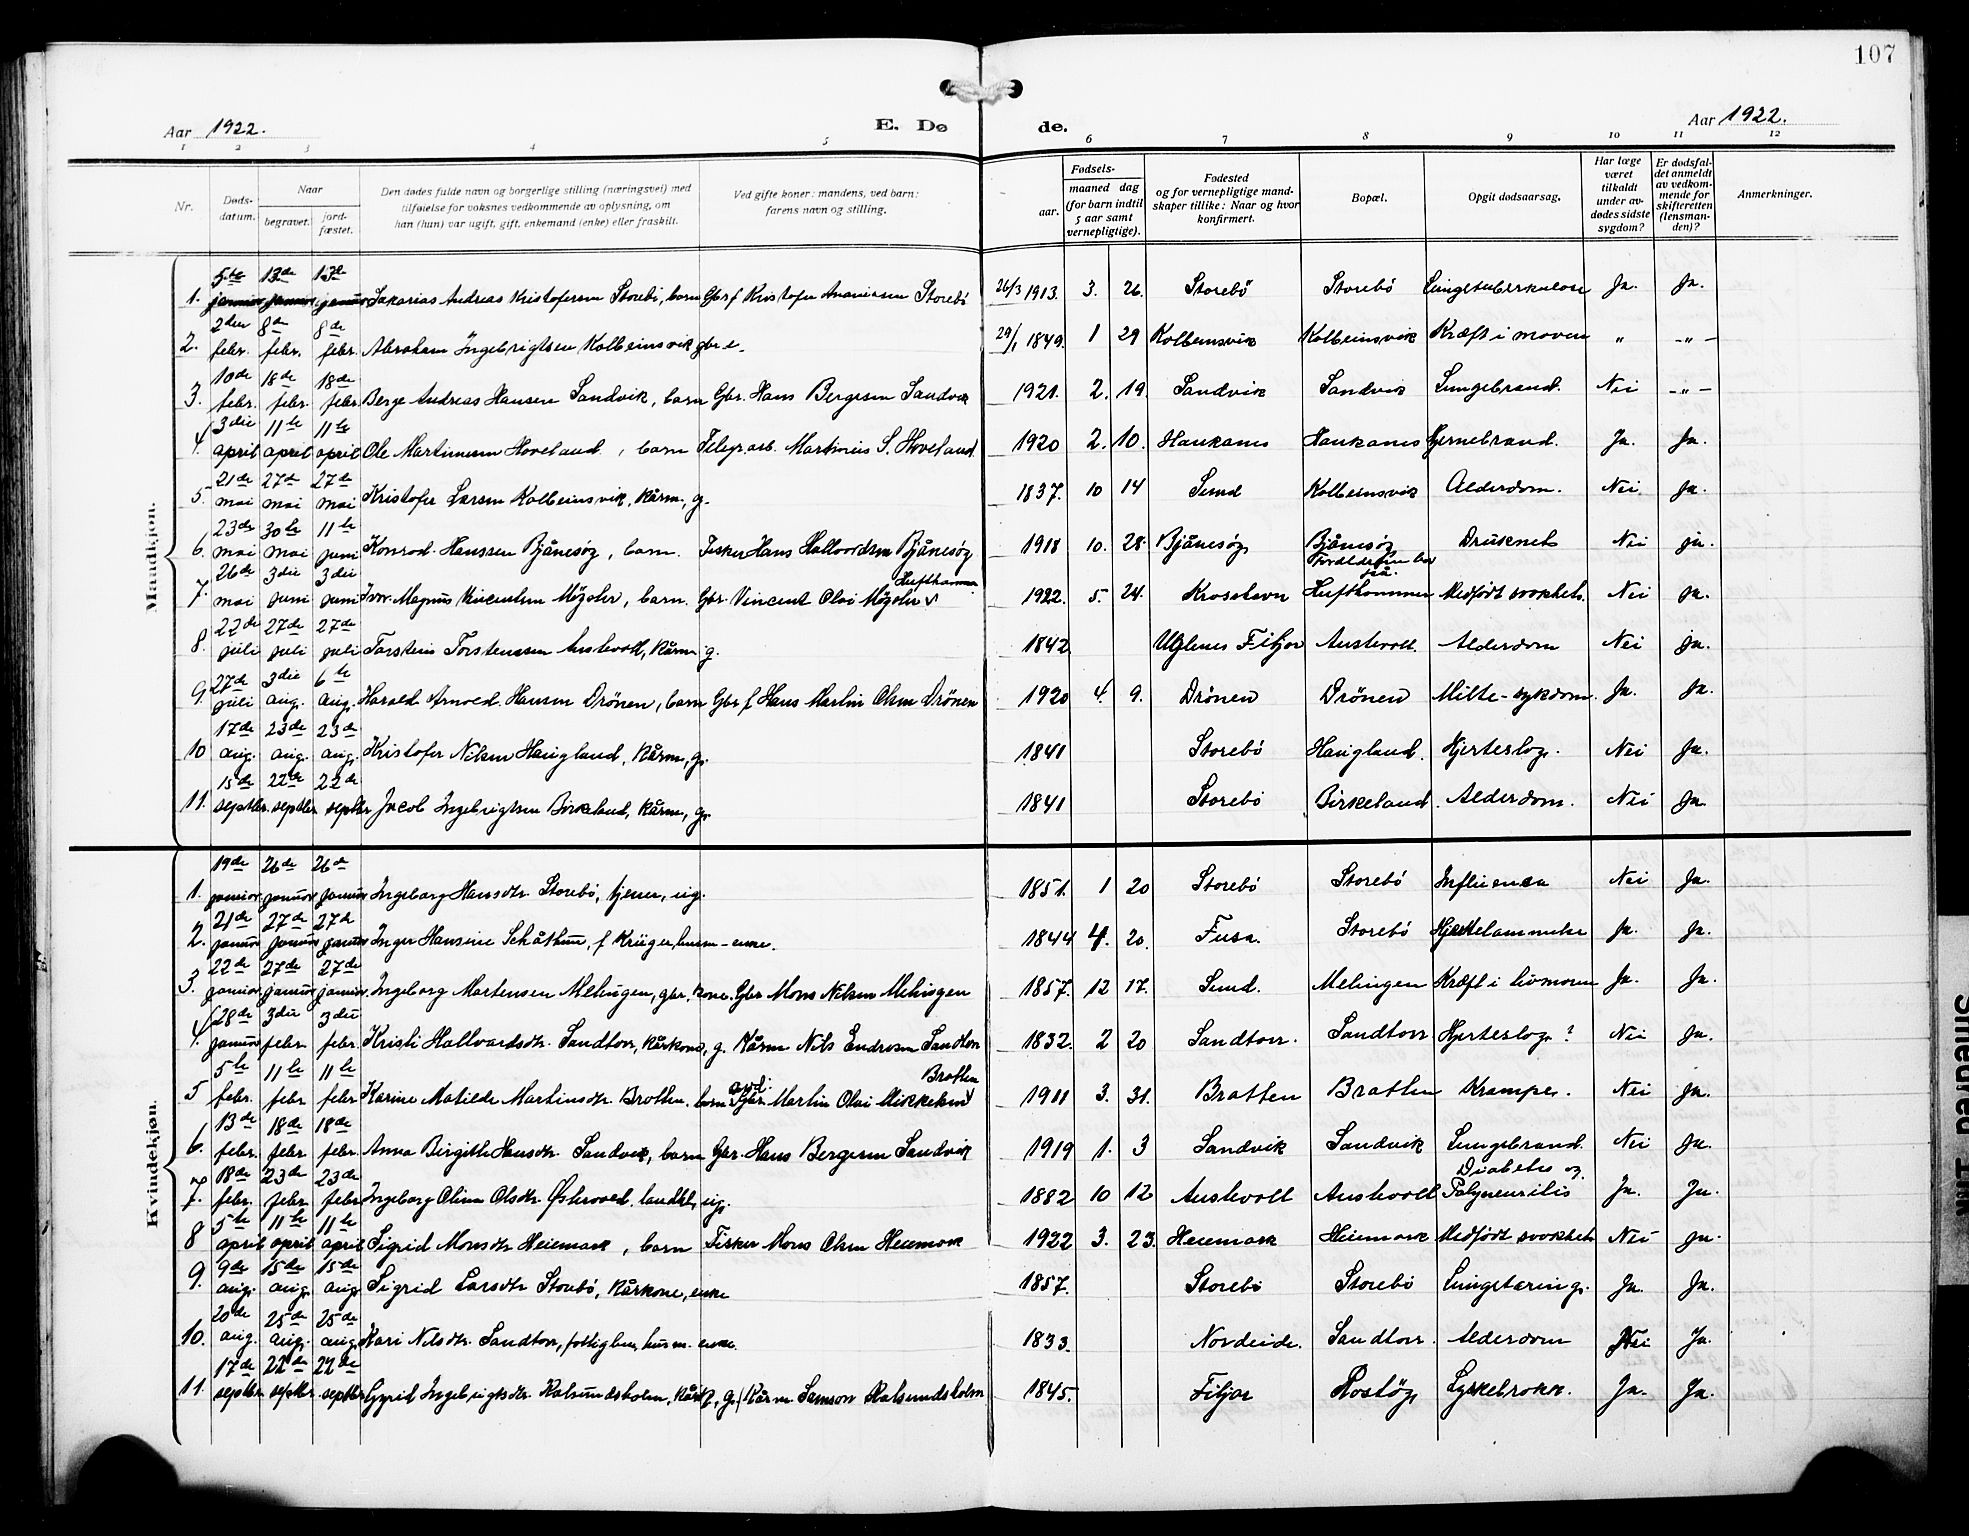 107
Aar 1922.
E. Dø de.
Aar 1922.
1 2 3 4 5 6 7 8 9 10 11 12
Nr. Døds-datum. Naar begravet. jord-fæstet. Den dødes fulde navn og borgerlige stilling (næringsvei) med tilføielse for voksnes vedkommende av oplysning, om han (hun) var ugift, gift, enkemand (enke) eller fraskilt. Ved gifte koner: mandens, ved barn: farens navn og stilling. Fødsels- aar. maaned dag (for barn indtil 5 aar samt vernepligtige). Fødested og for vernepligtige mand-skaper tillike: Naar og hvor konfirmert. Bopæl. Opgit dødsaarsag. Har læge været tilkaldt under av-dødes sidste sygdom? Er dødsfal-det anmeldt av vedkom-mende for skifteretten (lensman-den)? Anmerkninger.
Mandkjøn.
1. 5te januar 13de januar 13de januar Sakarias Andreas Kristofersen Storebö, barn Gbr f Kristofer Ananiassen Storebö 26/3 1913. 3. 26. Storebö Storebö Lungetuberkulose Ja. Ja.
2. 2den febr. 8de febr. 8de febr. Abraham Ingebrigtsen Kolbeinsvik gbr e. 29/1 1849. 1 29 Kolbeinsvik Kolbeinsvik Kræft i maven " -"-
3. 10de febr. 18de febr. 18de febr. Berge Andreas Hansen Sandvik, barn Gbr. Hans Bergesen Sandvik 1921. 2. 19. Sandvik Sandvik Lungebrand. Nei -"-
4. 3die april 11te april 11te april Ole Martinussen Hoveland, barn Telegr.arb. Martinius S. Hoveland 1920 2. 10. Haukanes Haukanes Hjernebrand. Ja. Ja.
5. 21de mai 27de mai 27de mai Kristofer Larsen Kolbeinsvik, Kårm, g. 1837. 10 14 Sund Kolbeinsvik Alderdom. Nei. Ja.
6. 23de mai 30te mai 11te juni Konrad Hanssen Bjånesöy, barn. Fisker Hans Hallvordsen Bjånesöy 1918 10. 28. Bjånesöy Bjånesöy Druknet Nei ja.
7. 26de mai 3die juni 3die juni Ivar Magnus Vincentsen Mögster, barn. Gbr. Vincent Olai Mögster Hufthammer 1922. 5. 24. Krosshavn Hufthammer Medfödt svakhet. Nei ja.
8. 22de juli 27de juli 27de juli Torstein Torsteinsen Austevoll, Kårm g. 1842 Uglenes Fitjar Austevoll Alderdom Nei ja.
9. 27de juli 3die aug. 6te aug. Harald Arnold Hansen Drönen, barn Gbr f Hans Martin Olsen Drönen 1920 4. 9. Drönen Drönen Milte-sykdom. Ja. Ja.
10 17de aug. 23de aug. 23de aug. Kristofer Nilsen Haugland, Kårm, g. 1841 Storebö Haugland. Hjerteslag. Nei Ja.
11. 15de septbr. 22de septbr. 22de septbr Jacob Ingebrigtsen Birkeland, Kårm, g. 1841 Storebö Birkeland. Alderdom. Nei Ja.
Kvindekjøn.
1. 19de januar. 26de januar 26de januar Ingeborg Hansdtr. Storebö, tjener, ug. 1851. 1 20 Storebö Storebö Influensa Nei Ja.
2. 21de januar 27de januar 27de januar Inger Hansine Schåthun, f Krüger, husm-enke. 1844 4. 20. Fusa. Storebö Hjertelammelse Ja. Ja.
3. 22de januar. 27de januar. 27de januar Ingeborg Martensen Melingen, gbr. kone. Gbr Mons Nilsen Melingen 1857. 12 17. Sund. Melingen Kræft i livmoren Ja. Ja.
4. 28de januar 3die febr. 3die febr. Kristi Hallvardsdtr. Sandtorv, Kårkone, g. Kårm Nils Endresen Sandtorv 1832. 2 20 Sandtorv. Sandtorv Hjerteslag? Nei Ja.
5 5te febr. 11te febr. 11te febr. Karine Matilde Martinsdtr. Bratten. barn Gbr. Martin Olai Mikkelsen Bratten 1911 3. 31. Bratten Bratten Krampe. Nei Ja.
6. 13de febr. 18de febr. 18de febr. Anna Birgitte Hansdtr. Sandvik, barn Gbr. Hans Bergesen Sandvik 1919 1. 3 Sandvik Sandvik Lungebrand. Nei Ja.
7. 18de febr. 23de febr. 23de febr Ingeborg Olina Olsdtr. Østervold. ug. 1882 10 12 Austevoll Austevoll Diabetes og Polyneuritis Ja. Ja.
8 5te april 11te april 11te april Sigrid Monsdtr Heiemark, barn Fisker Mons Olsen Heiemark 1922 3. 23. Heiemark Heiemark Medfödt svakhet Nei ja.
9. 9de aug. 15de aug. 15de aug. Sigrid Larsdtr Storebö, Kårkone, enke 1857. Storebö Storebö Lungetæring. Ja. Ja.
10. 20de aug. 25de aug. 25de aug. Kari Nilsdtr. Sandtorv, fattiglem, husm. enke. 1833. Nordeide. Sandtorv. Alderdom Nei Ja.
11. 17de septbr. 22de septbr. 22de septbr Gyrid Ingebrigtsdtr. Kalsundsholm, Kårk, g. Kårm Samson Kalsundsholm 1845. Fitjar Rostöy Lyskebrokk. Ja. Ja.